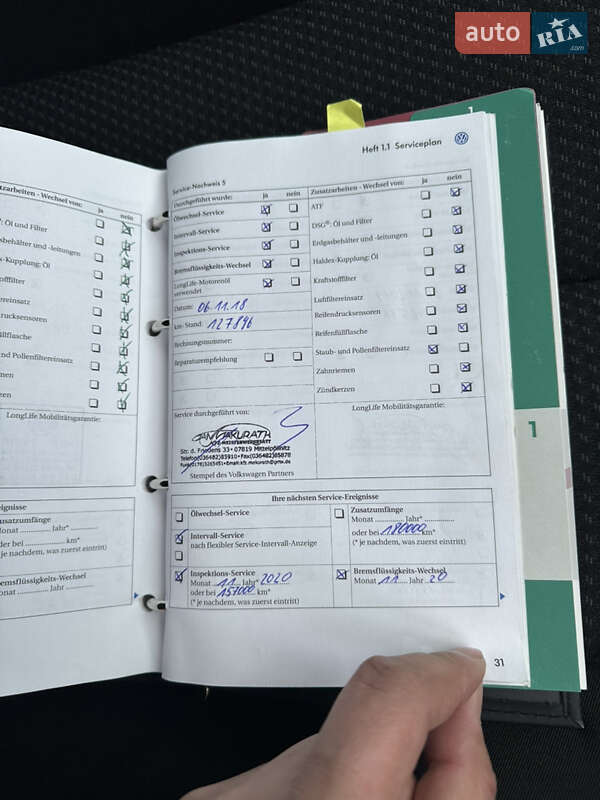 auto RIA .com
1
usatzarbeiten - Wechsel von:
ja
nein
: Öl und Filter
gasbehälter und -leitungen
ex-Kupplung: Öl
stofffilter
ereinsatz
ndrucksensoren
üllflasche
und Pollenfiltereinsatz
riemen
erzen
LongLife Mobilitätsgarantie:
ice-Ereignisse
Zusatzumfänge
Monat ............ Jahr* ............
oder bei ............ km*
(* je nachdem, was zuerst eintritt)
Bremsflüssigkeits-Wechsel
Monat ............ Jahr ............
Heft 1.1 Serviceplan
Service-Nachweis 5
Durchgeführt wurde:
ja
nein
Ölwechsel-Service
Intervall-Service
Inspektions-Service
Bremsflüssigkeits-Wechsel
LongLife-Motorenöl
verwendet
Datum: 06.11.18
km-Stand: 127896
Rechnungsnummer:
Reparaturempfehlung
Zusatzarbeiten - Wechsel von:
ja
nein
ATF
DSG®: Öl und Filter
Erdgasbehälter und -leitungen
Haldex-Kupplung: Öl
Kraftstofffilter
Luftfiltereinsatz
Reifendrucksensoren
Reifenfüllflasche
Staub- und Pollenfiltereinsatz
Zahnriemen
Zündkerzen
Service durchgeführt von:
LongLife Mobilitätsgarantie:
Str. d. Friedens 33 • 07819 Mittelpöllnitz
Telefon(036482)83910 • Fax(036482)85878
Stempel des Volkswagen Partners
Ihre nächsten Service-Ereignisse
Ölwechsel-Service
Intervall-Service
nach flexibler Service-Intervall-Anzeige
Inspektions-Service
Monat 11 Jahr* 2020
oder bei 157000 km*
(* je nachdem, was zuerst eintritt)
Zusatzumfänge
Monat ............ Jahr* ............
oder bei 180000 km*
(* je nachdem, was zuerst eintritt)
Bremsflüssigkeits-Wechsel
Monat 11 Jahr 20
31
1